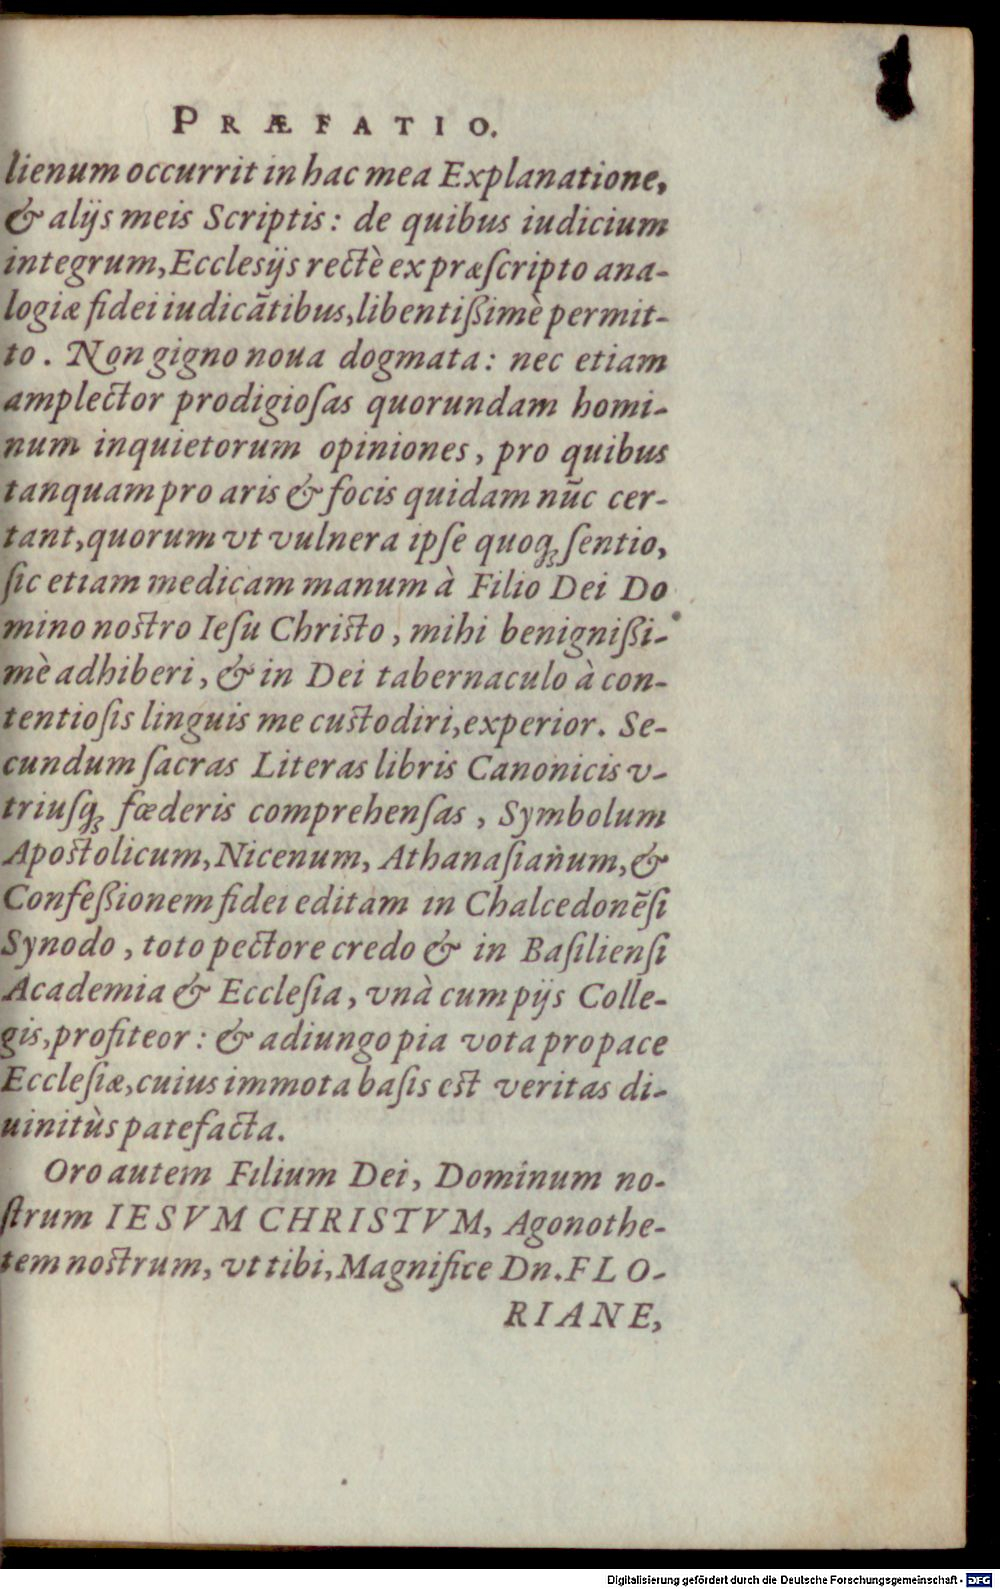 PRÆFATIO.
lienum occurrit in hac mea Explanatione,
& alijs meis Scriptis: de quibus iudicium
integrum, Ecclesijs rectè ex præſcripto ana-
logiæ fidei iudicãtibus, libentißimè permit-
to. Non gigno noua dogmata: nec etiam
amplector prodigioſas quorundam homi-
num inquietorum opiniones, pro quibus
tanquam pro aris & focis quidam nũc cer-
tant, quorum vt vulnera ipſe quoqꝫ ſentio,
ſic etiam medicam manum à Filio Dei Do
mino noſtro Ieſu Chriſto, mihi benignißi-
mè adhiberi, & in Dei tabernaculo à con-
tentioſis linguis me cuſtodiri, experior. Se-
cundum ſacras Literas libris Canonicis v-
triuſqꝫ fœderis comprehenſas, Symbolum
Apoſtolicum, Nicenum, Athanaſianum, &
Confeßionem fidei editam in Chalcedonẽſi
Synodo, toto pectore credo & in Baſilienſi
Academia & Eccleſia, vnà cum pijs Colle-
gis, profiteor: & adiungo pia vota pro pace
Eccleſiæ, cuius immota baſis eſt veritas di-
uinitùs patefacta.
Oro autem Filium Dei, Dominum no-
ſtrum IESVM CHRISTVM, Agonothe-
tem noſtrum, vt tibi, Magnifice Dn. FLO-
RIANE,
Digitalisierung gefördert durch die Deutsche Forschungsgemeinschaft - DFG